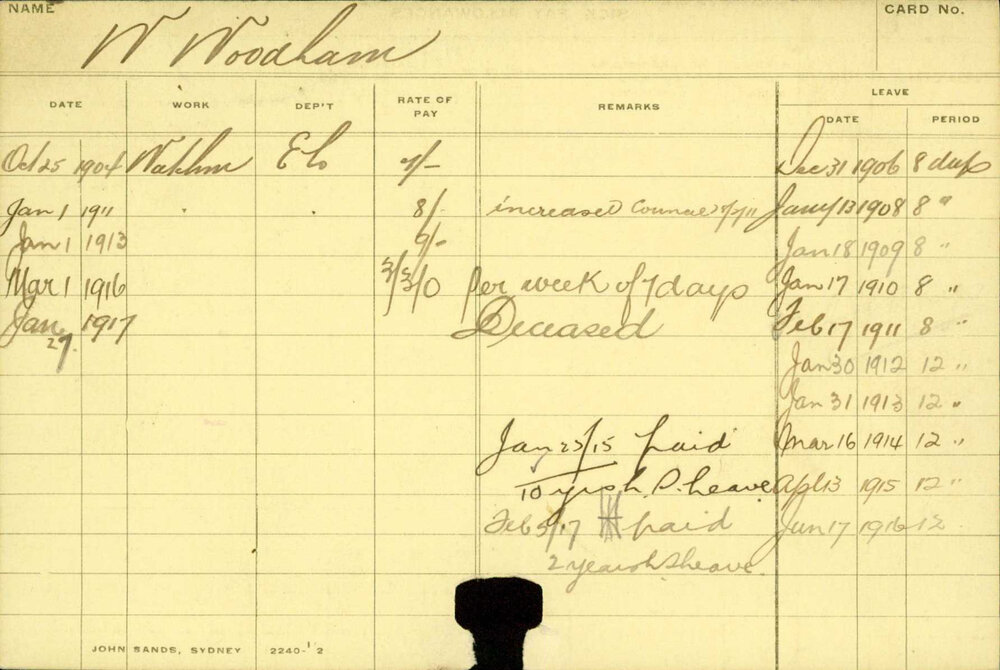 NAME
CARD No.
W Woodham
DATE WORK DEP'T RATE OF PAY REMARKS LEAVE
DATE PERIOD
Oct 25 1904 Watchm E L 7/- Dec 31 1906 8 days
Jan 1 1911 " " 8/- increased Council 7/2/11 Jany 13 1908 8 "
Jan 1 1913 9/- Jan 18 1909 8 "
Mar 1 1916 3/3/0 per week of 7 days Jan 17 1910 8 "
Jan 27 1917 Deceased Feb 17 1911 8 "
Jan 30 1912 12 "
Jan 31 1913 12 "
Jan 23/15 paid Mar 16 1914 12 "
10 yrs L.S. Leave Apl 13 1915 12 "
Feb 5/17 paid Jun 17 1916 12
2 years L S Leave
JOHN SANDS, SYDNEY 2240-12